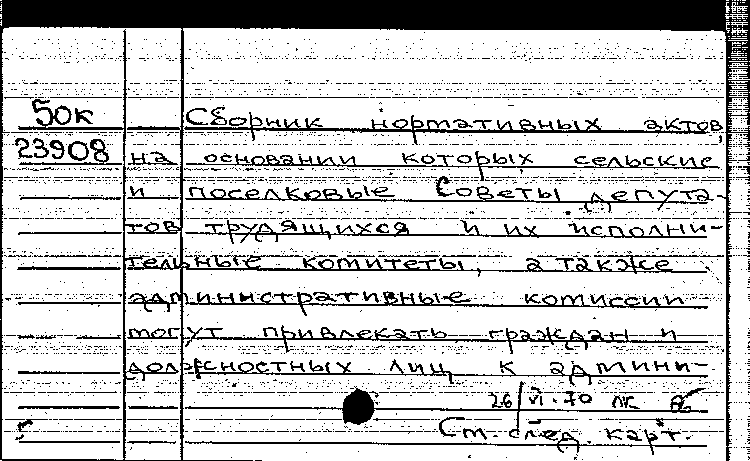 50к Сборник нормативных актов,
23908 на основании которых сельские
и поселковые Советы депута-
тов трудящихся и их исполни-
тельные комитеты, а также
административные комиссии
могут привлекать граждан и
должностных лиц к админи-
26/VI-70
См. след. карт.